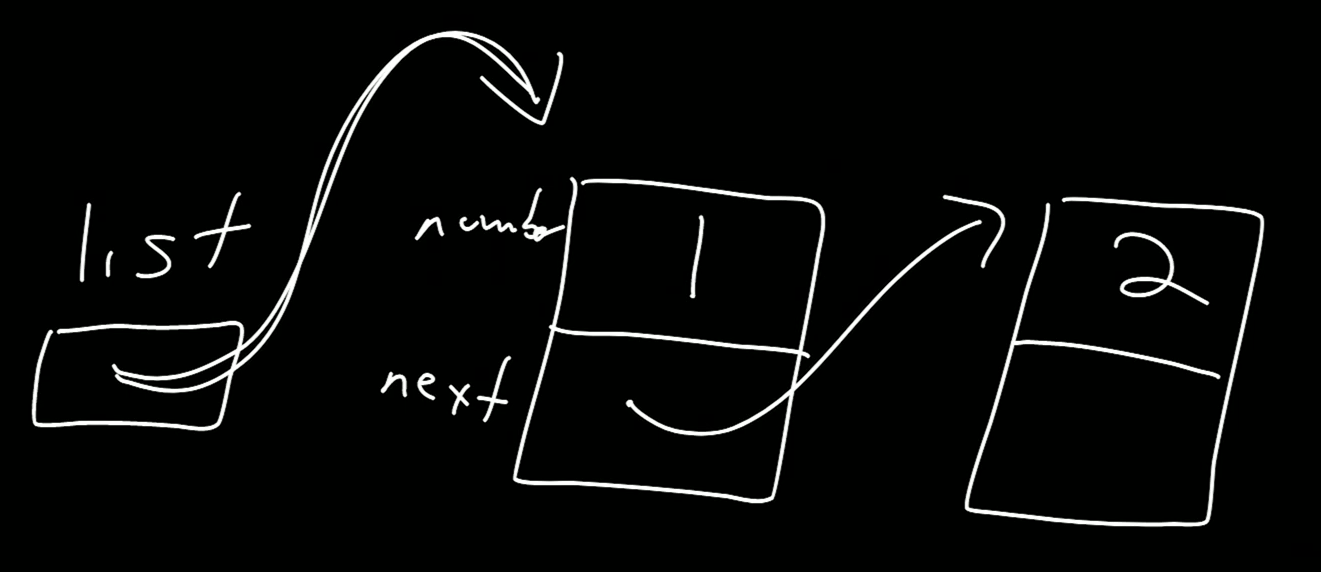 list
number
1
2
next